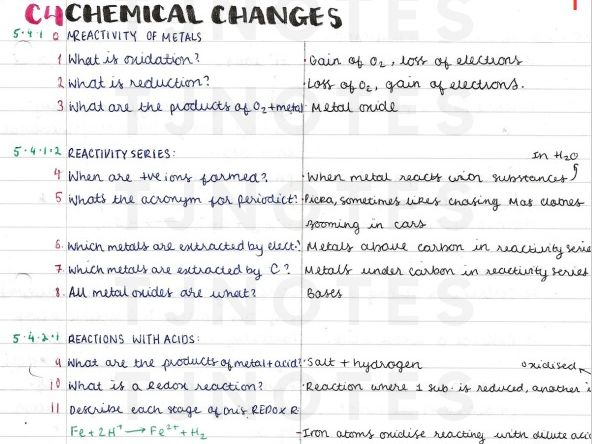 C4 CHEMICAL CHANGES
5.4.1 REACTIVITY OF METALS
1 What is oxidation? · Gain of O₂, loss of electrons
2 What is reduction? · Loss of O₂, gain of electrons.
3 What are the products of O₂+metal · Metal oxide
5.4.1.2 REACTIVITY SERIES: In H₂O
4 When are +ve ions formed? · When metal reacts with substances
5 Whats the acronym for periodict? · sometimes likes chasing Mas clothes
zooming in cars
6. Which metals are extracted by elect.? Metals above carbon in reactivity serie
7. Which metals are extracted by C? Metals under carbon in reactivity series
8. All metal oxides are what? Bases
5.4.2.1 REACTIONS WITH ACIDS:
9 What are the products of metal+acid? · Salt + hydrogen oxidised
10 What is a Redox reaction? · Reaction where 1 sub. is reduced, another i
11 Describe each stage of this REDOX R
Fe + 2H⁺ → Fe²⁺ + H₂ - Iron atoms oxidise reacting with dilute acid
TJNOTES
TJNOTES
TJNOTES
TJNOTES